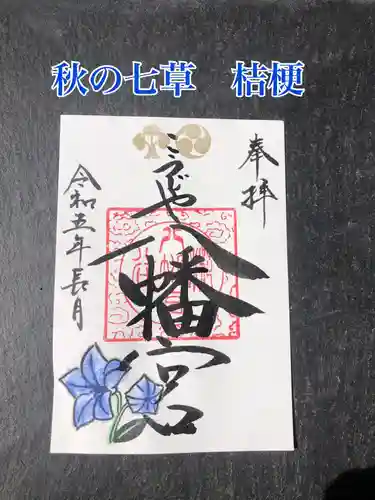 秋の七草　桔梗
奉拝
こうじや
八幡宮
令和五年長月